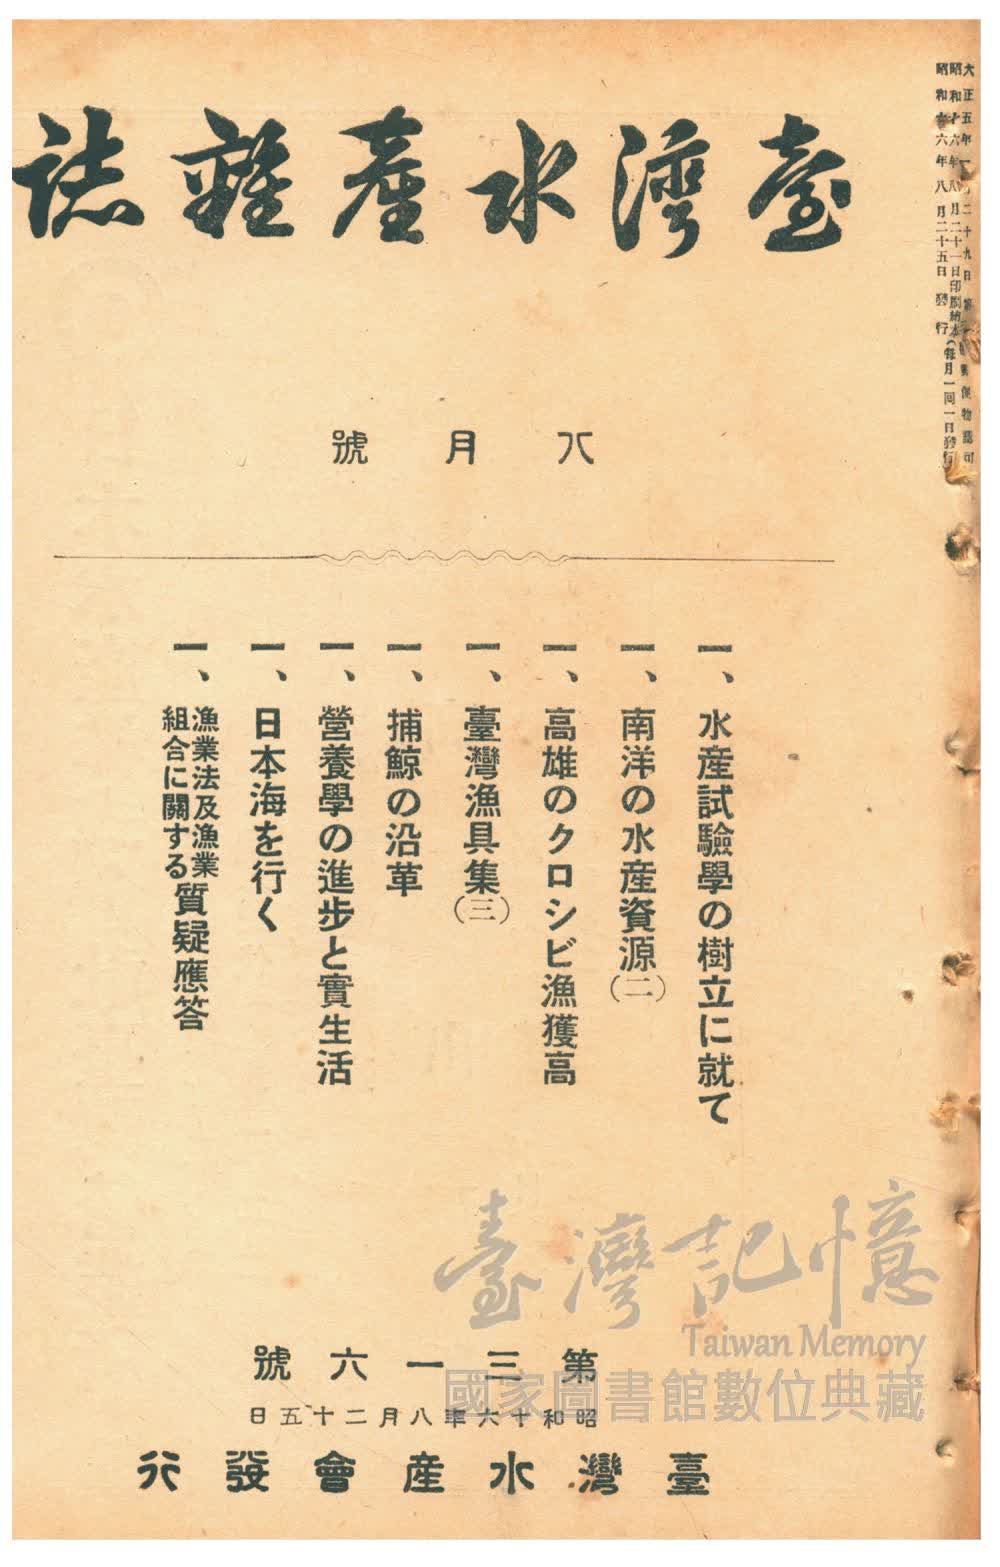 大正五年一月二十九日第三種郵便物認可
昭和十六年八月二十一日印刷納本(毎月一回一日發行)
昭和十六年八月二十五日發行
臺灣水產雜誌
八月號
一、水產試驗學の樹立に就て
一、南洋の水產資源(二)
一、高雄のクロシビ漁獲高
一、臺灣漁具集(三)
一、捕鯨の沿革
一、營養學の進步と實生活
一、日本海を行く
一、漁業法及漁業組合に關する質疑應答
第三一六號
昭和十六年八月二十五日
臺灣水產會發行
臺灣記憶
Taiwan Memory
國家圖書館數位典藏